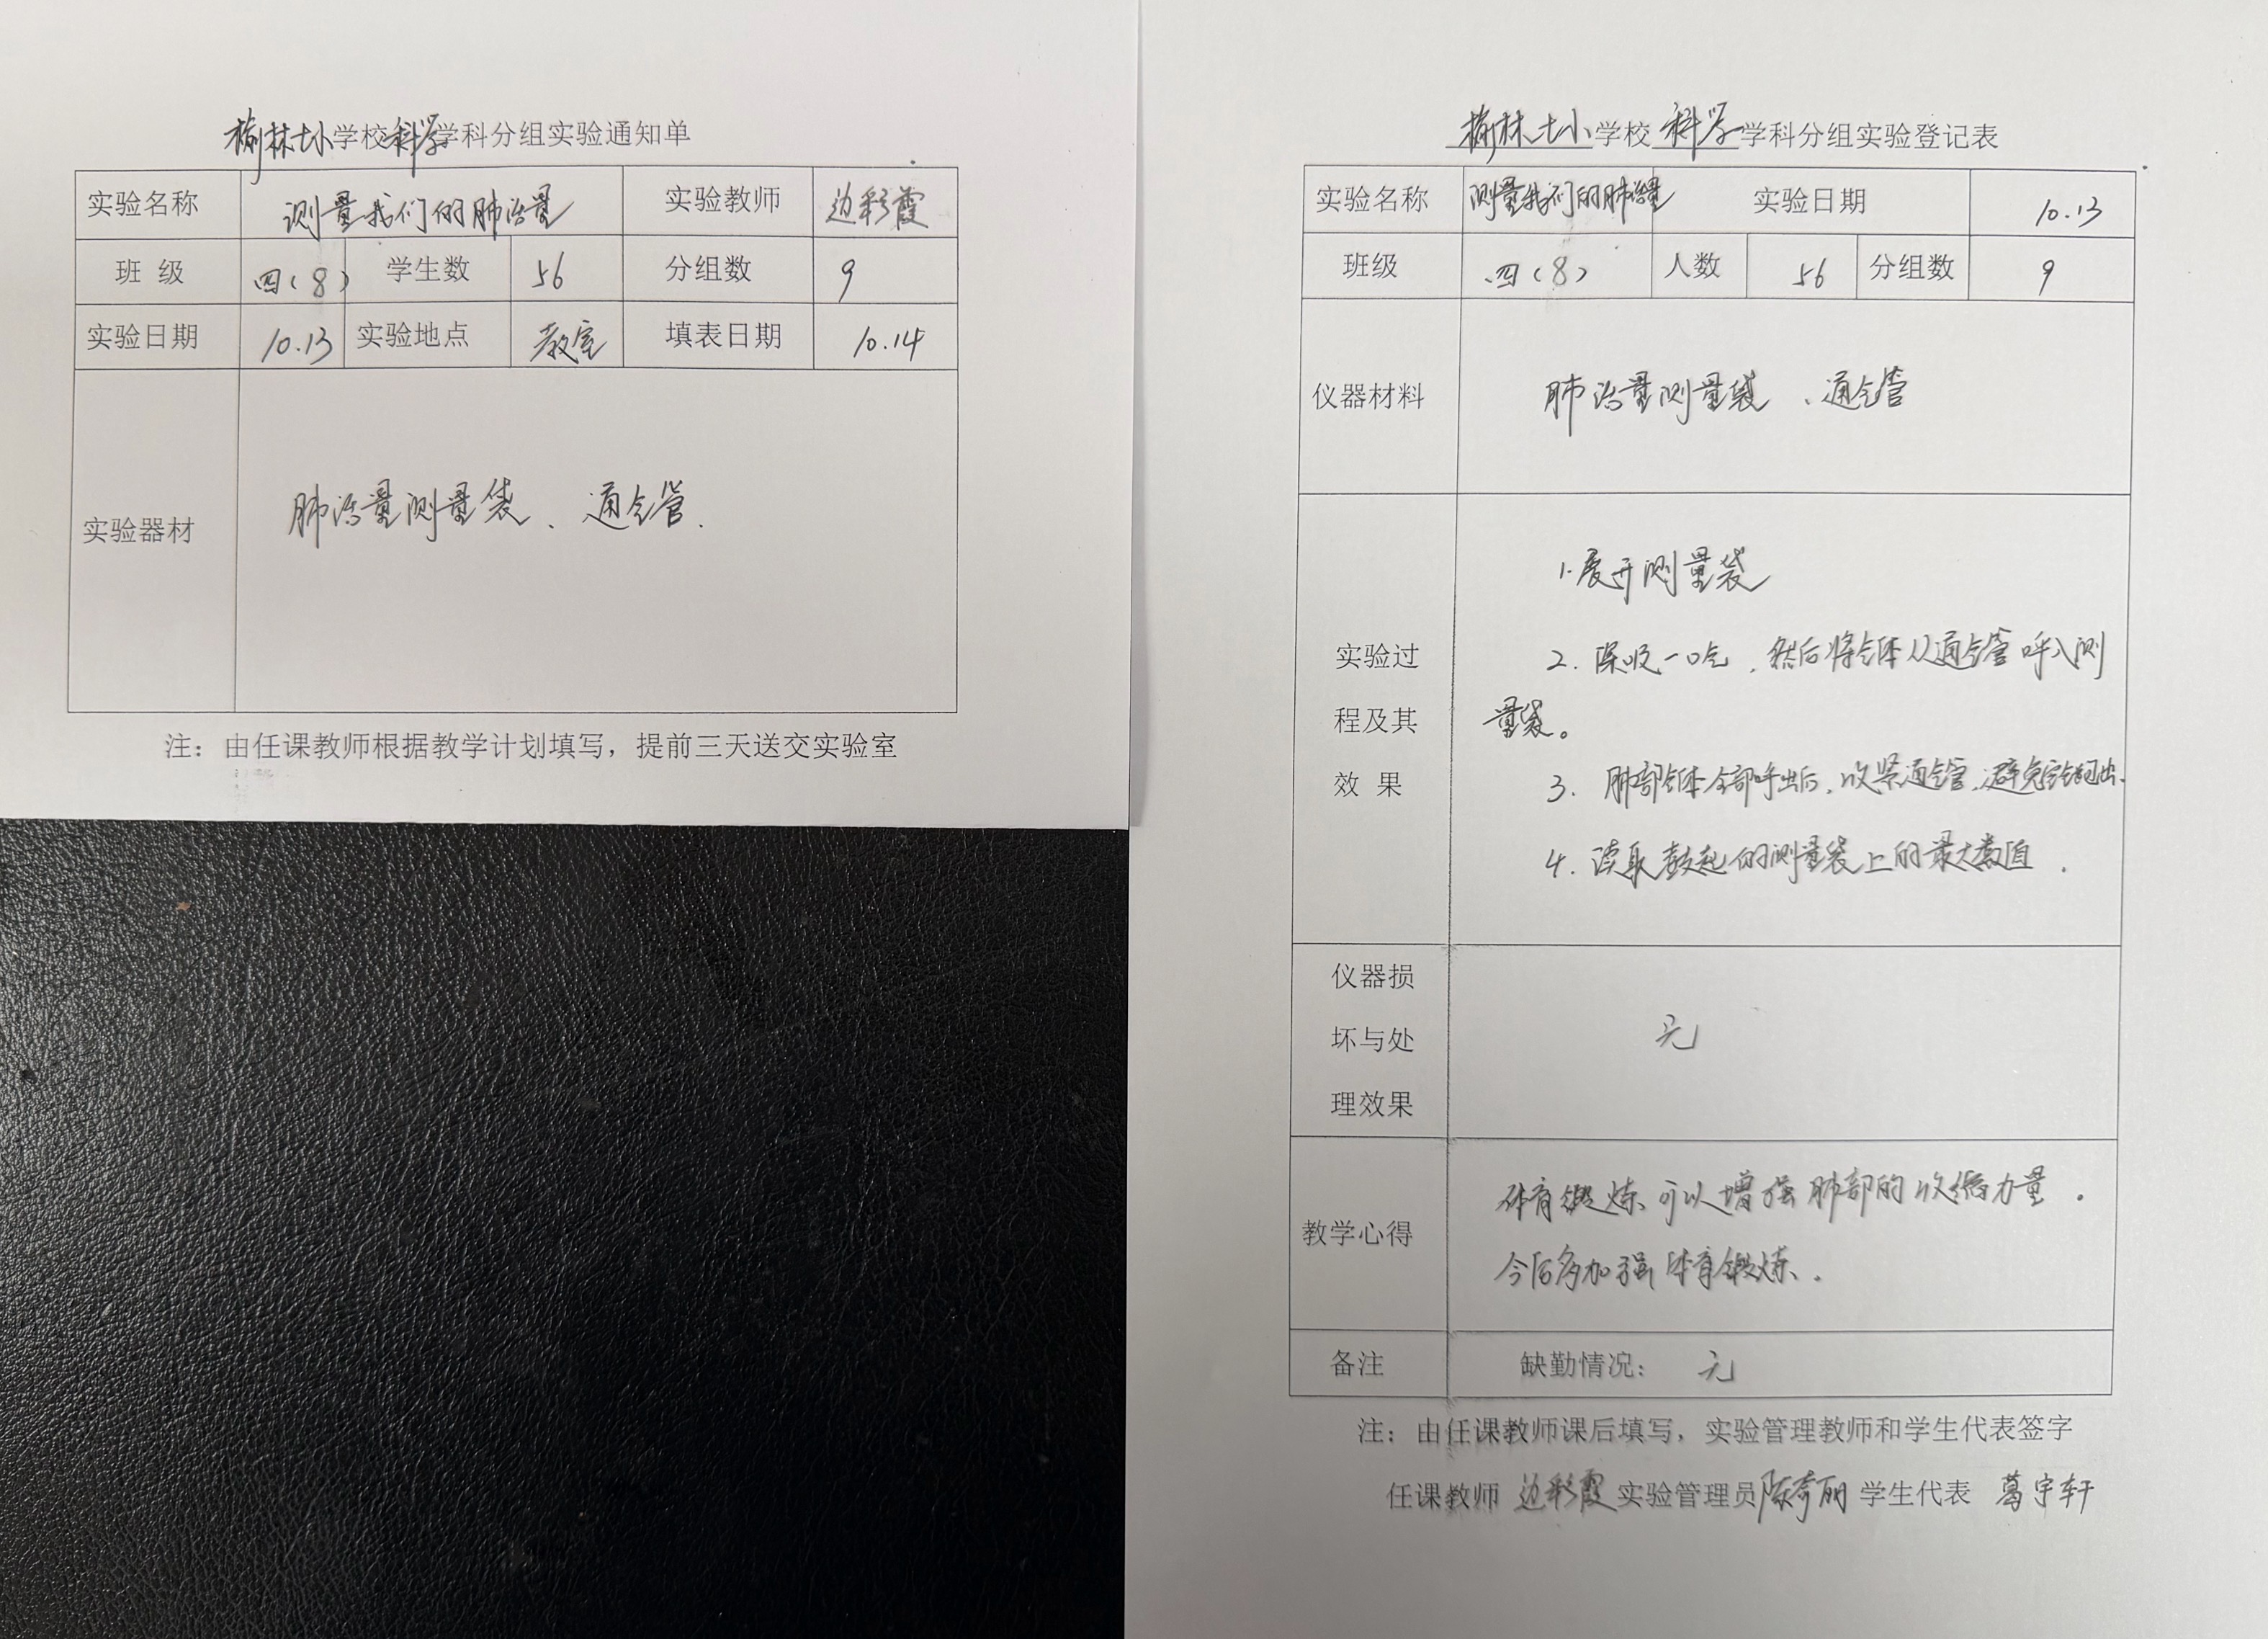 榆林七小学校科学学科分组实验通知单
实验名称 测量我们的肺活量 实验教师 边彩霞
班 级 四(8) 学生数 56 分组数 9
实验日期 10.13 实验地点 教室 填表日期 10.14
实验器材 肺活量测量袋、通气管.
注：由任课教师根据教学计划填写，提前三天送交实验室
榆林七小学校 科学 学科分组实验登记表
实验名称 测量我们的肺活量 实验日期 10.13
班级 四(8) 人数 56 分组数 9
仪器材料 肺活量测量袋、通气管
实验过
程及其
效 果
1.展开测量袋
2. 深吸一口气，然后将气体从通气管呼入测
量袋。
3. 肺部气体全部呼出后，收紧通气管，避免气体跑出.
4. 读取鼓起的测量袋上的最大数值.
仪器损
坏与处
理效果
无
教学心得
体育锻炼可以增强肺部的收缩力量.
今后多加强体育锻炼.
备注 缺勤情况： 无
注：由任课教师课后填写，实验管理教师和学生代表签字
任课教师 边彩霞 实验管理员 陈奇丽 学生代表 葛宇轩